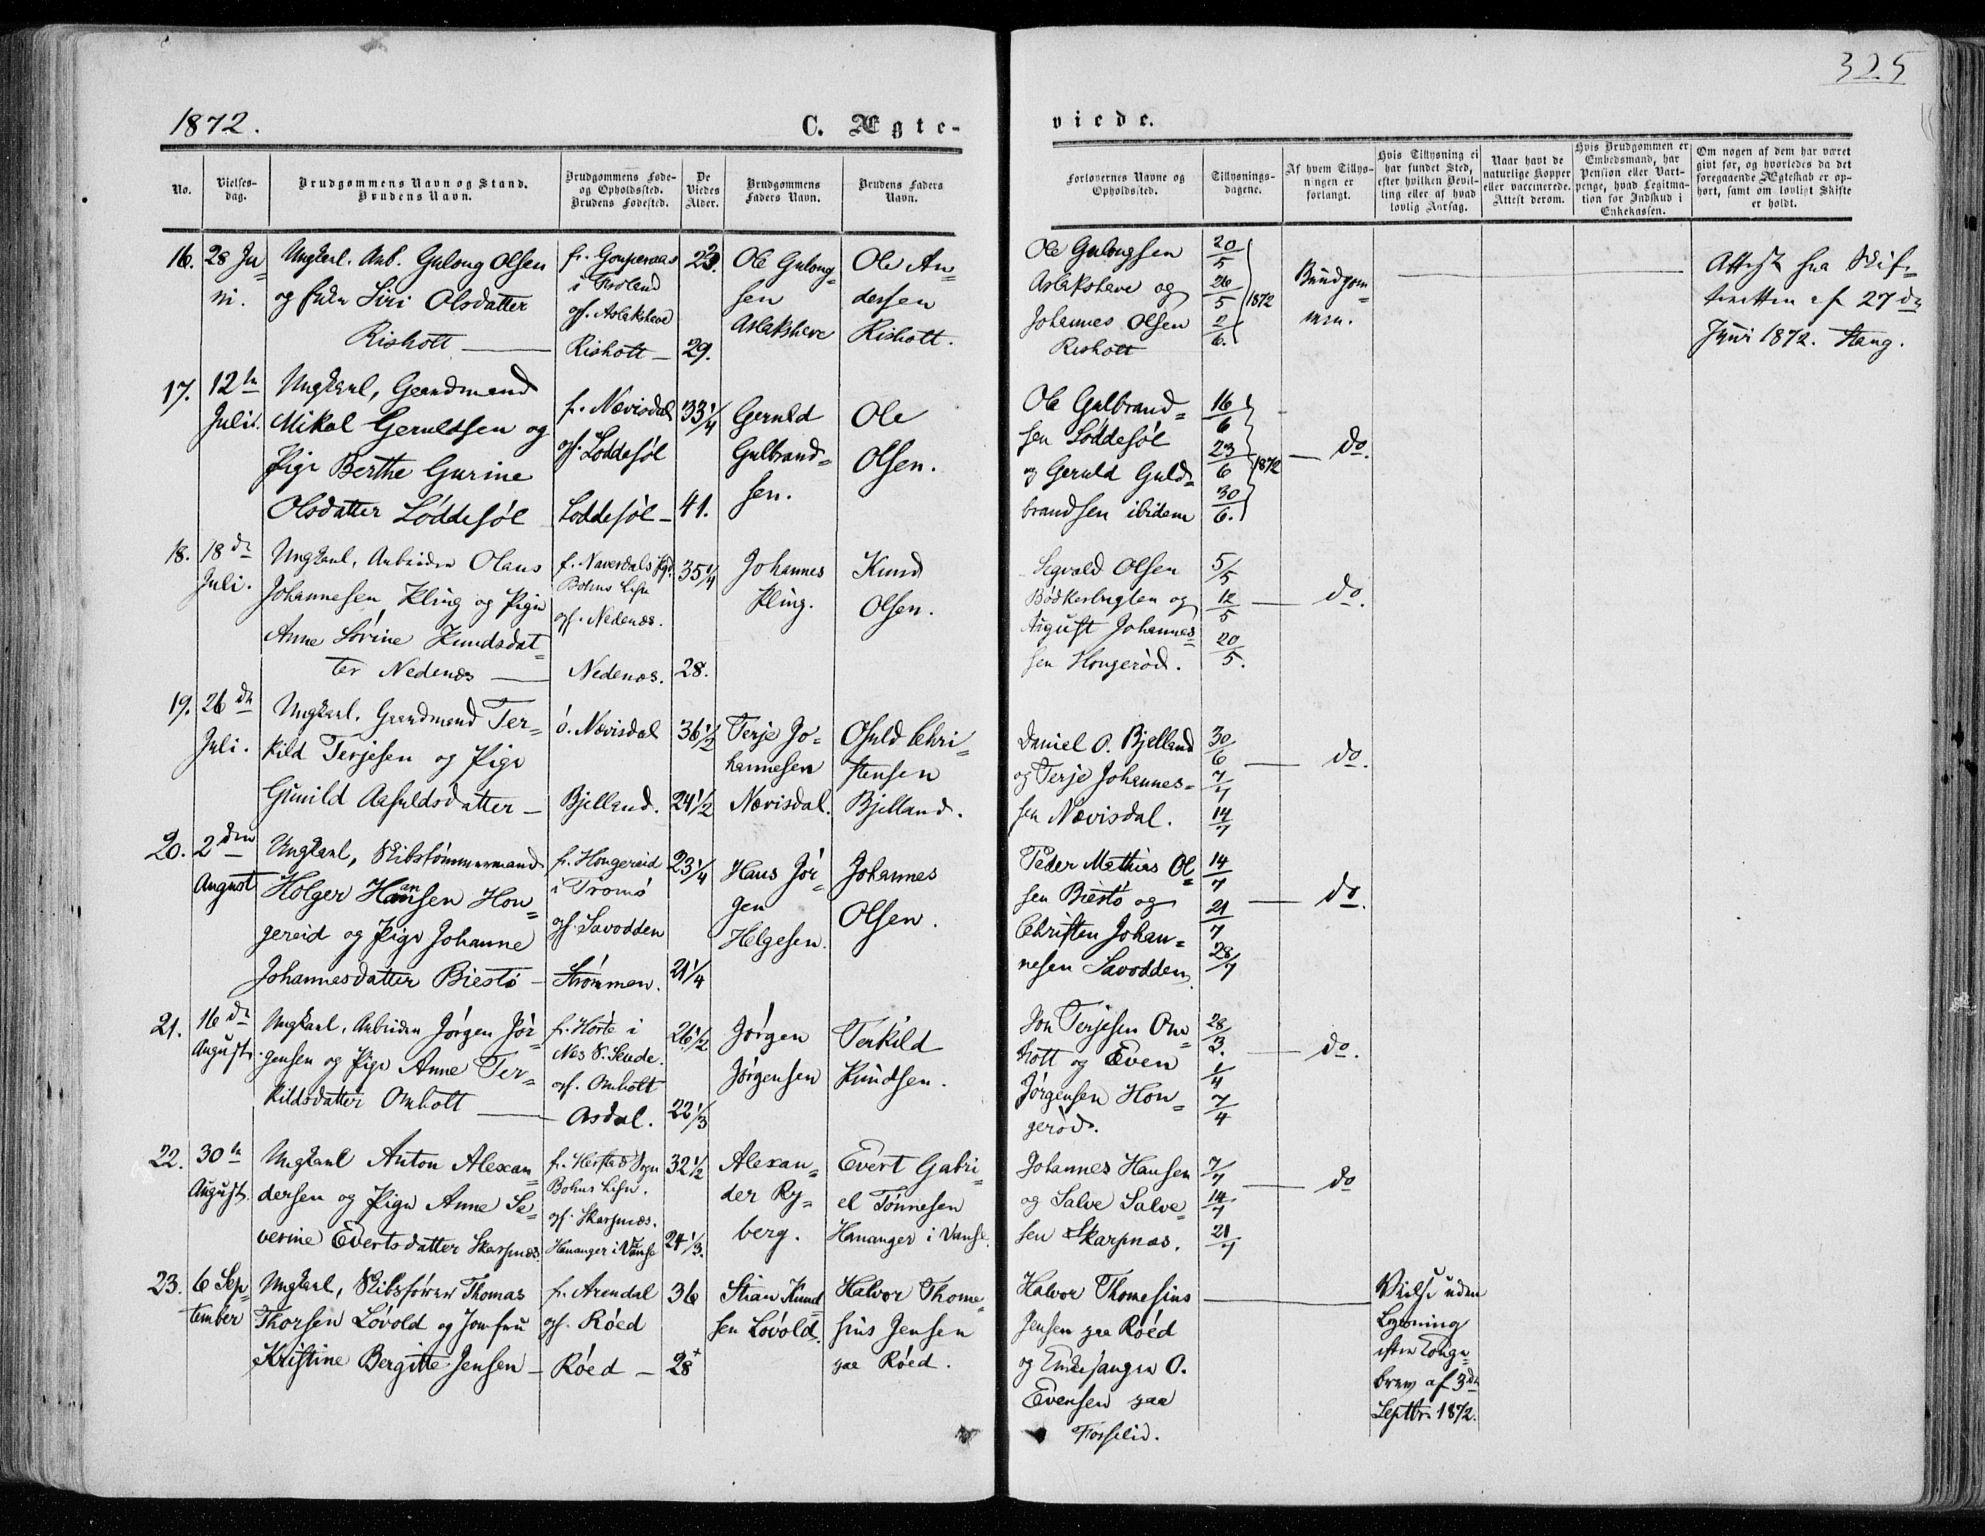 325
1872.
C. Ægte-
viede.
No.
Vielses-
dag.
Brudgommens Navn og Stand.
Brudens Navn.
Brudgommens Føde-
og Opholdssted.
Brudens Fødested.
De
Viedes
Alder.
Brudgommens
Faders Navn.
Brudens Faders
Navn.
Forlovernes Navne og
Opholdssted.
Tillysnings-
dagene.
Af hvem Tillys-
ningen er
forlangt.
Hvis Tillysning ei
har fundet Sted,
efter hvilken Bevil-
ling eller af hvad
lovlig Aarsag.
Naar havt de
naturlige Kopper
eller vaccinerede.
Attest derom.
Hvis Brudgommen er
Embedsmand, har
Pension eller Vart-
penge, hvad Legitima-
tion for Indskud i
Enkekassen.
Om nogen af dem har været
givt før, og hvorledes da det
foregaaende Ægteskab er op-
hørt, samt om lovligt Skifte
er holdt.
16.
28 Ju-
ni.
Ungkarl. Arb. Gulong Olsen
og Siri Olsdatter
Risholt
fr.
i Froland
og. Aslaksheve
Risholt
23.
29.
Ole Gulong-
sen
Aslaksheve
Ole An-
dersen
Risholt.
Ole Gulongsen
Aslaksheve og
Johannes Olsen
Risholt
20/5
26/5
2/6.
1872
Brudgom-
men.
Attest fra Skif-
teretten af 27de
Juni 1872. Stang.
17.
12te
Juli.
Ungkarl, Gaardmand
Mikal Geruldsen og
Pige Berthe Gurine
Olsdatter Løddesøl
f. Nævisdal
og. Løddesøl
Løddesøl
33 1/4
41.
Geruld
Gulbrand-
sen.
Ole
Olsen.
Ole Gulbrand-
sen Løddesøl
og Geruld Guld-
brandsen ibidem
16/6
23/6
30/6.
1872
do.
18.
18de
Juli.
Ungkarl, Arbeider Olaus
Johannesen Kling og Pige
Anne Sørine Knudsdat-
ter Nedenæs
f. Naverdals
Bohus Lehn
og. Nedenæs.
Nedenæs.
35 1/4
28.
Johannes
Kling.
Knud
Olsen.
Segvald Olsen
Bødkerbugten og
August Johannes-
sen Hongerød.
5/5
12/5
20/5.
do.
19.
26de
Juli.
Ungkarl. Gaardmand Ter-
kild Terjesen og Pige
Gunild Aasuldsdatter
ó. Nævisdal
Bjelland.
36 1/2
24 1/2
Terje Jo-
hannesen
Nævisdal.
Osuld Chri-
stensen
Bjelland.
Daniel O. Bjelland
og Terje Johannes-
sen Nævisdal.
30/6
7/7
14/7
do.
20.
2den
August
Ungkarl, Skibstømmermand
Holger Hansen Hon-
gereid og Pige Johanne
Johannesdatter Biestø
fr. Hongereid
i Tromø
og. Savodden
Strømmen.
23 1/4
21 1/4
Hans Jør-
gen
Helgesen.
Johannes
Olsen.
Peder Mathias Ol-
sen Biestø og
Christen Johan-
nesen Savodden
14/7
21/7
28/7
do.
21.
16de
August.
Ungkarl, Arbeider Jørgen Jør-
gensen og Pige Anne Ter-
kildsdatter Omholt
fr. Hørte i
Nes S.
og. Omholt
Asdal.
26 1/2
22 1/3
Jørgen
Jørgensen
Terkild
Knudsen.
Jon Terjesen Om-
holt og Even
Jørgensen Hon-
gerød.
28/3.
1/4
7/4
do.
22.
30te
August.
Ungkarl Anton Alexan-
dersen og Pige Anne Se-
verine Evertsdatter Skarpnæs
fr. Herstad Sogn
Bohus Lehn.
og. Skarpnæs.
Hananger i Vanse
32 1/2
24 1/3.
Alexan-
der Ry-
berg.
Evert Gabri-
el Tønnesen
Hananger i Vanse.
Johannes Hansen
og Salve Salve-
sen Skarpnæs.
7/7
14/7
21/7
do
23.
6 Sep-
tember
Ungkarl, Skibsfører Thomas
Thorsen Løvold og Jomfru
Kristine Bergitte Jensen
fr. Arendal
og. Røed
Røed
36
28
Stian Knud-
sen Løvold.
Halvor Thome-
sius Jensen
paa Røed.
Halvor Thomesius
Jensen paa Røed
og O.
Evensen paa
Vielse uden
Lysning
efter Konge-
brev af 3de
Septbr. 1872.